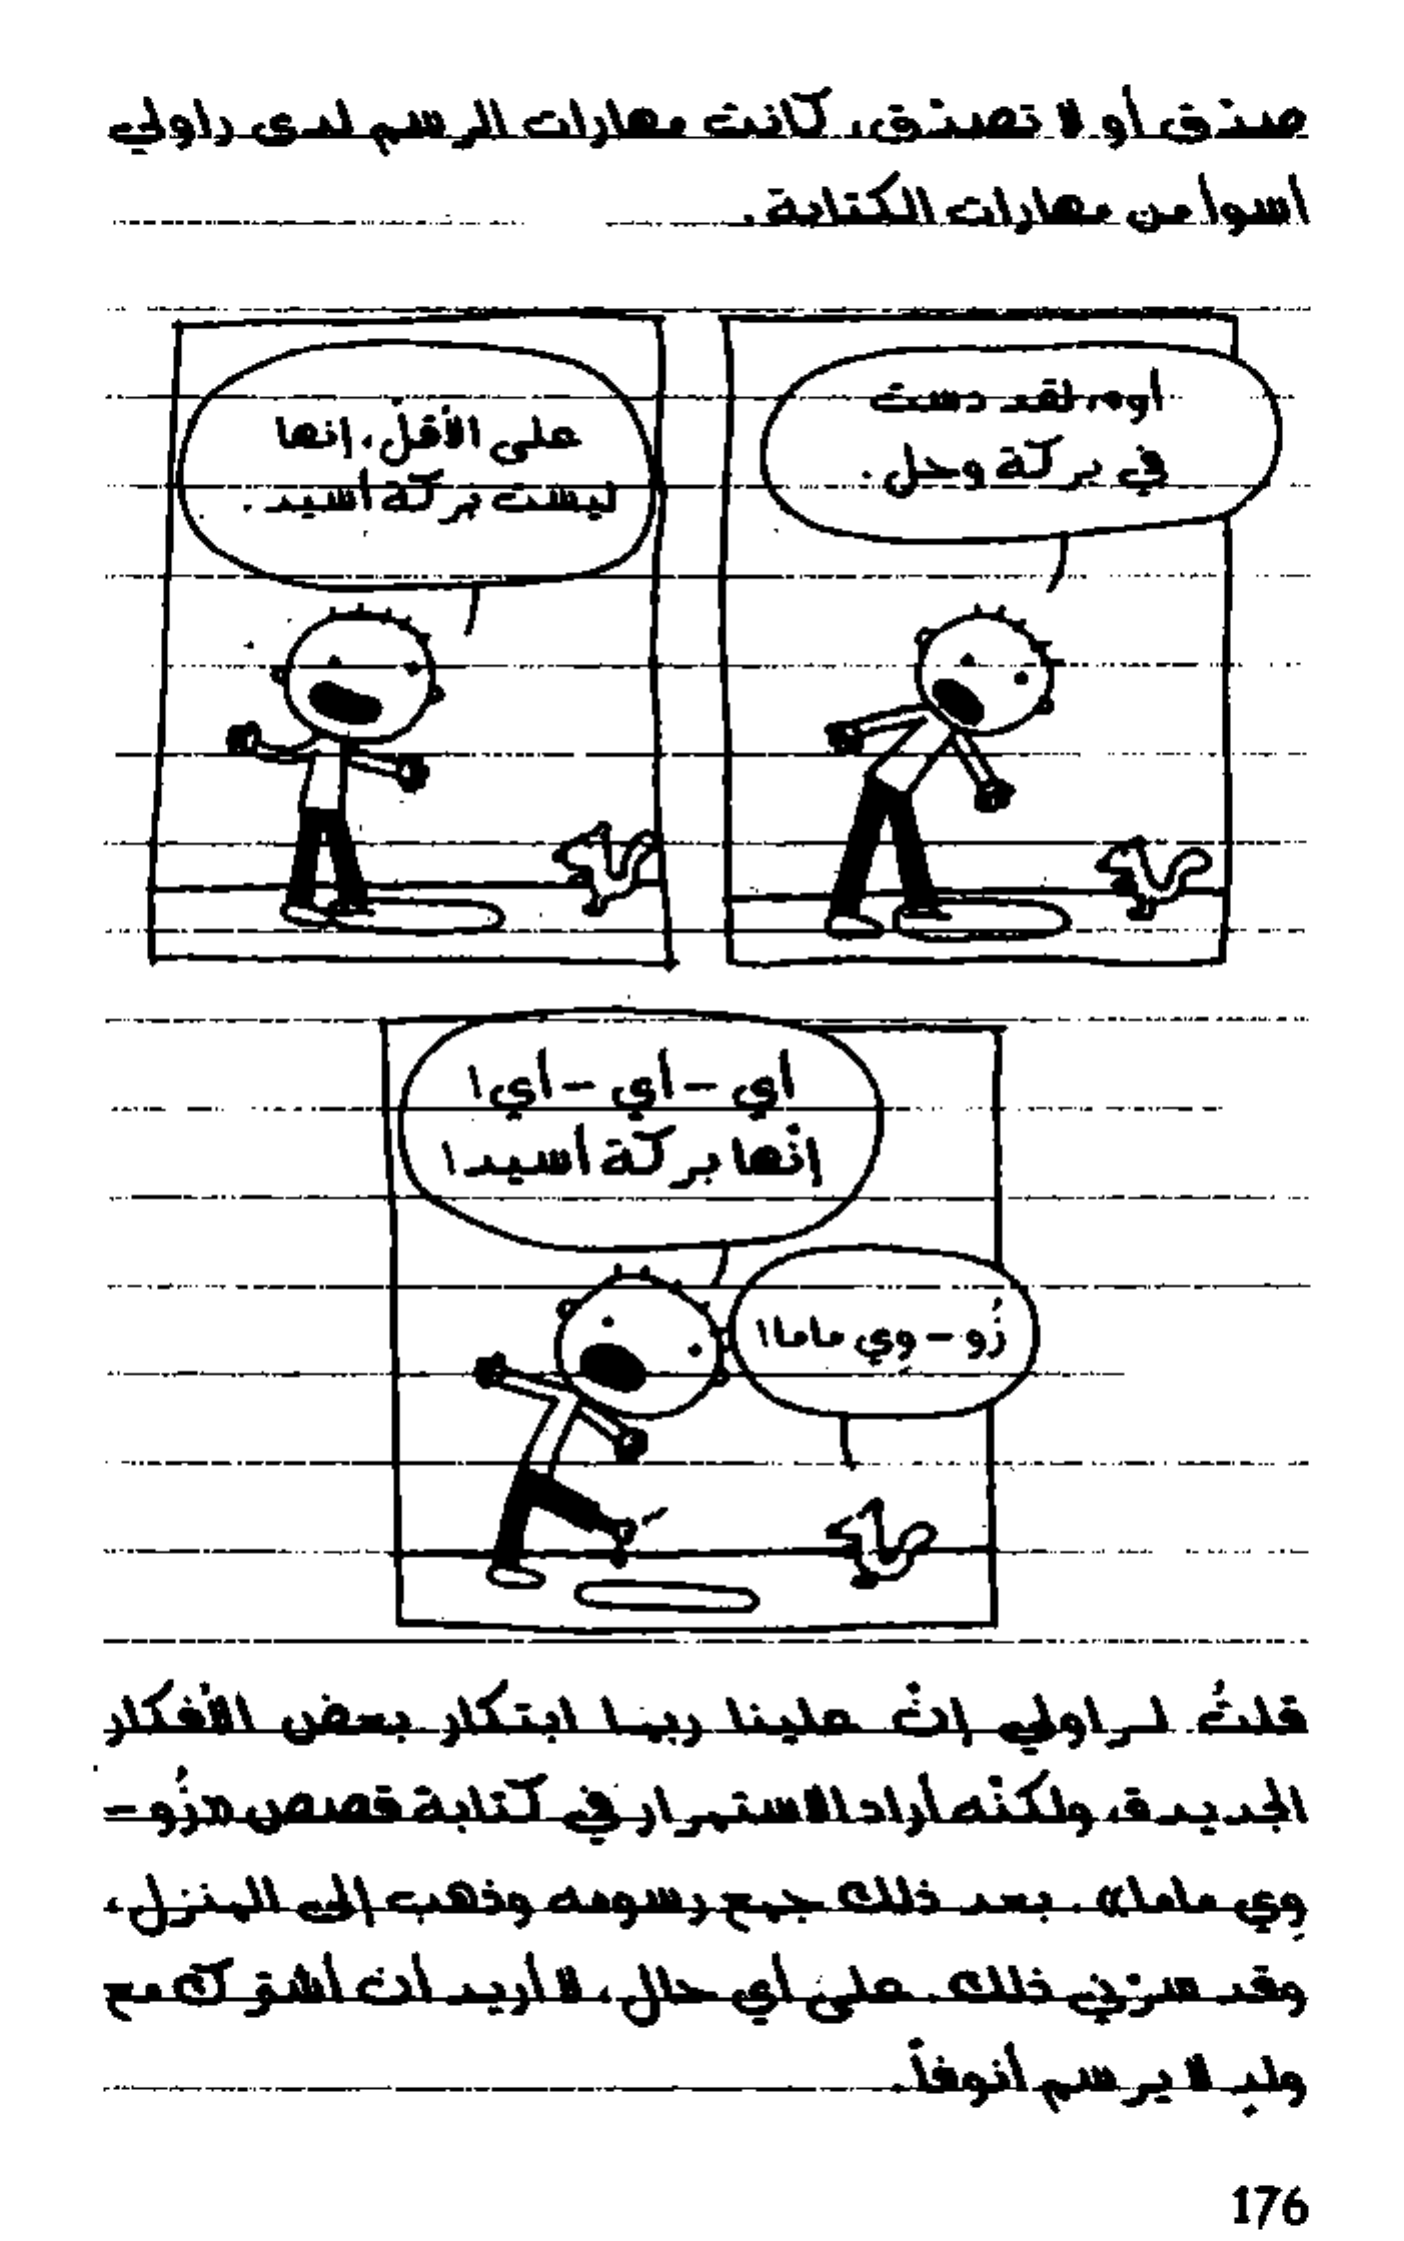 صدّق أو لا تصدّق، كانت مهارات الرسم لدى راولي
أسوأ من مهارات الكتابة.
أوه، لقد دست
في بركة وحل.
على الأقلّ، إنها
ليست بركة أسيد.
أي - أي - أي!
إنّها بركة أسيد!
زُو - وِي ماما!
قلتُ لراولي إنّ علينا ربما ابتكار بعض الأفكار
الجديدة، ولكنّه أراد الاستمرار في كتابة قصص «زُو-
وِي ماما». بعد ذلك جمع رسومه وذهب إلى المنزل،
وقد سرّني ذلك. على أي حال، لا أريد أن أشترك مع
ولدٍ لا يرسم أنوفاً.
176